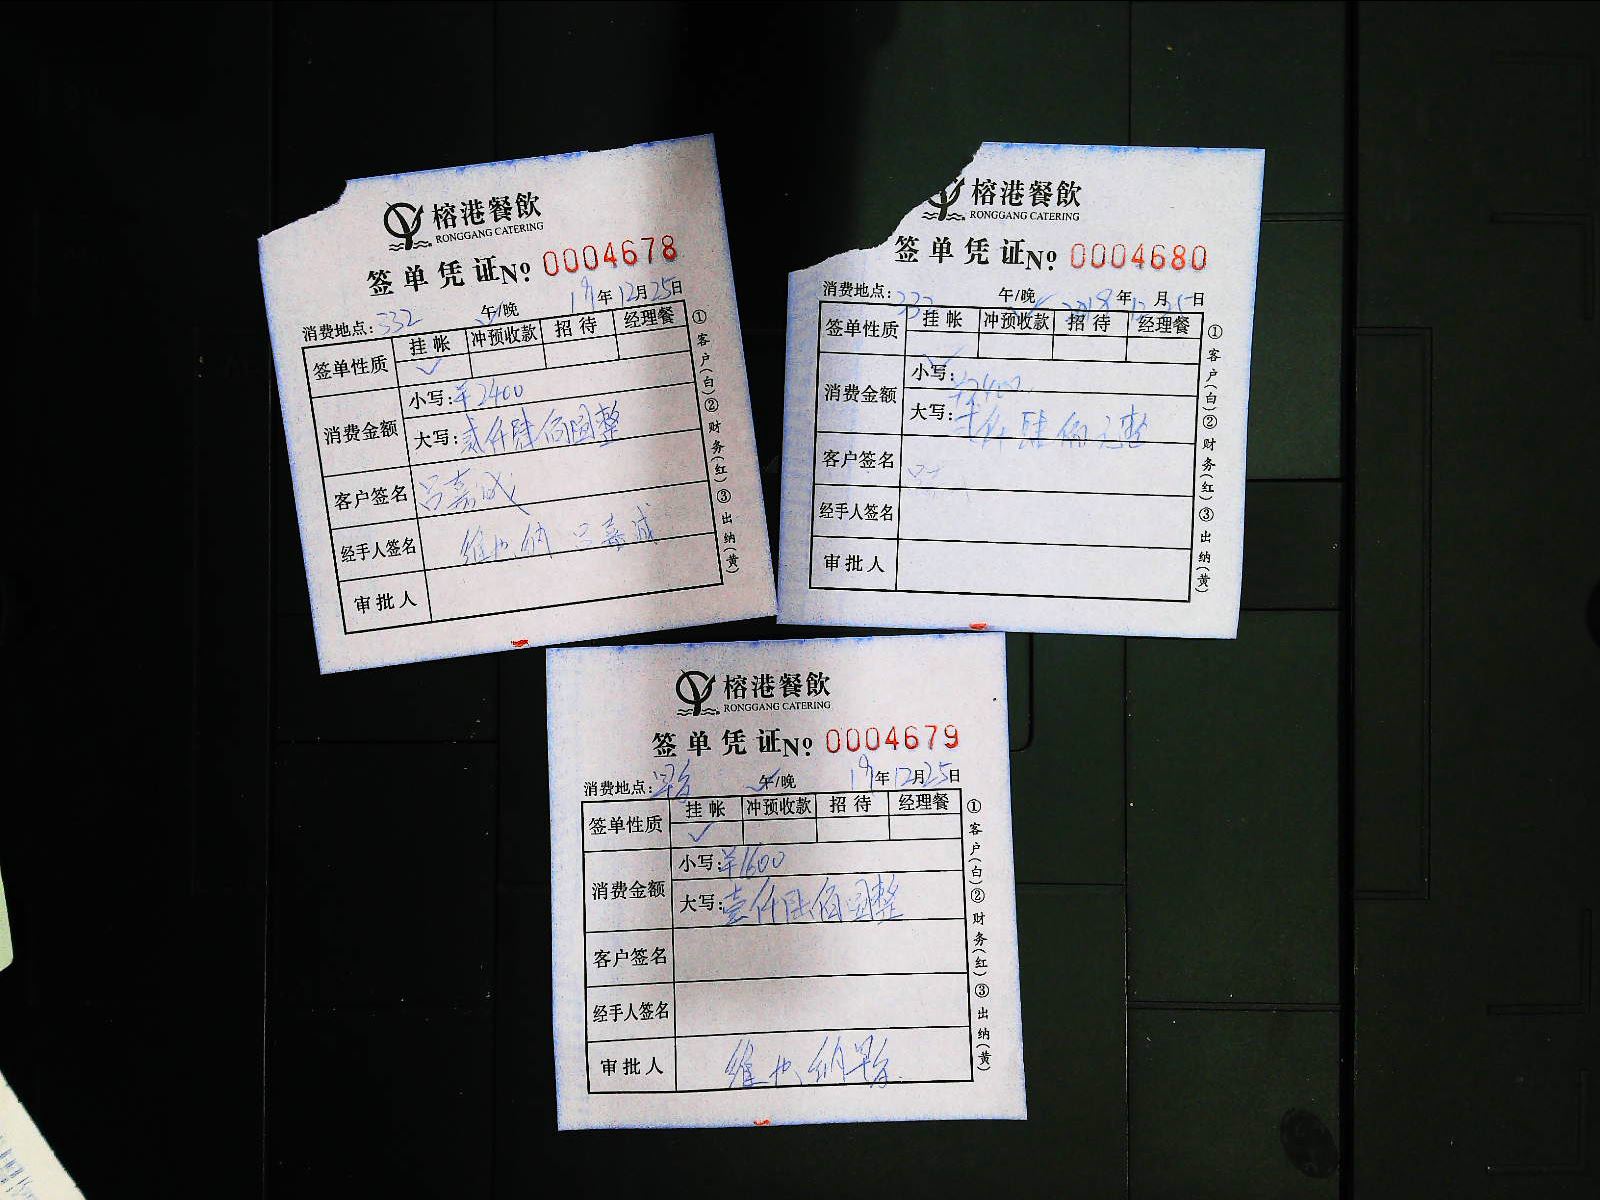 榕港餐飲
RONGGANG CATERING
签单凭证 No 0004678
消费地点: 332 午/晚 19年12月25日
签单性质 挂帐 冲预收款 招待 经理餐
✓
消费金额 小写: ¥2400
大写: 贰仟肆佰圆整
客户签名 吕嘉成
经手人签名 维也纳 吕嘉成
审批人
①客户(白)②财务(红)③出纳(黄)
榕港餐飲
RONGGANG CATERING
签单凭证 No 0004680
消费地点: 332 午/晚 2018年12月25日
签单性质 挂帐 冲预收款 招待 经理餐
✓
消费金额 小写: ¥2400
大写: 贰仟肆佰元整
客户签名
经手人签名
审批人
①客户(白)②财务(红)③出纳(黄)
榕港餐飲
RONGGANG CATERING
签单凭证 No 0004679
消费地点: 午/晚 19年12月25日
签单性质 挂帐 冲预收款 招待 经理餐
✓
消费金额 小写: ¥1600
大写: 壹仟陆佰圆整
客户签名
经手人签名
审批人 维也纳
①客户(白)②财务(红)③出纳(黄)